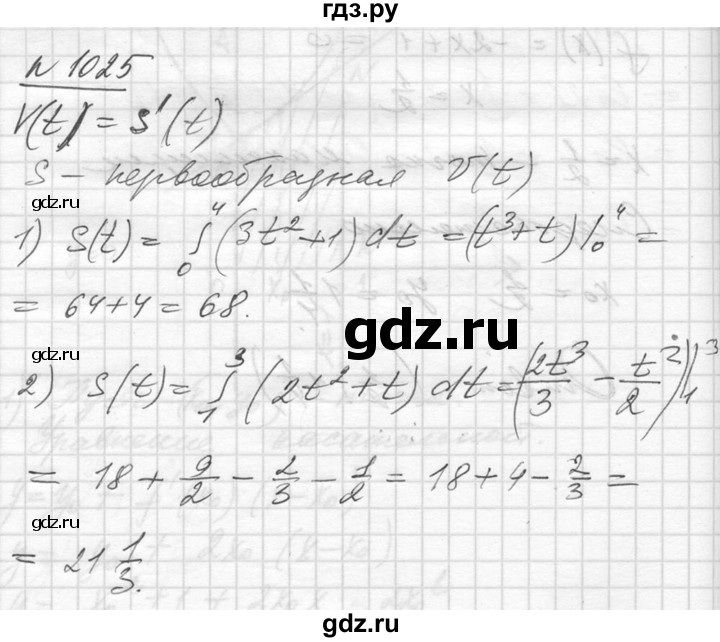 гдз.ру
N 1025
V(t) = S'(t)
S – первообразная V(t)
gdz.ru
1) S(t) = ∫₀⁴ (3t²+1) dt = (t³+t) |₀⁴ =
= 64+4 = 68.
gdz.ru
gdz.ru
2) S(t) = ∫₁³ (2t²+t) dt = (2t³/3 – t²/2) |₁³
= 18 + 9/2 – 2/3 – 1/2 = 18 + 4 – 2/3 =
gdz.ru
= 21 1/3.
gdz.ru